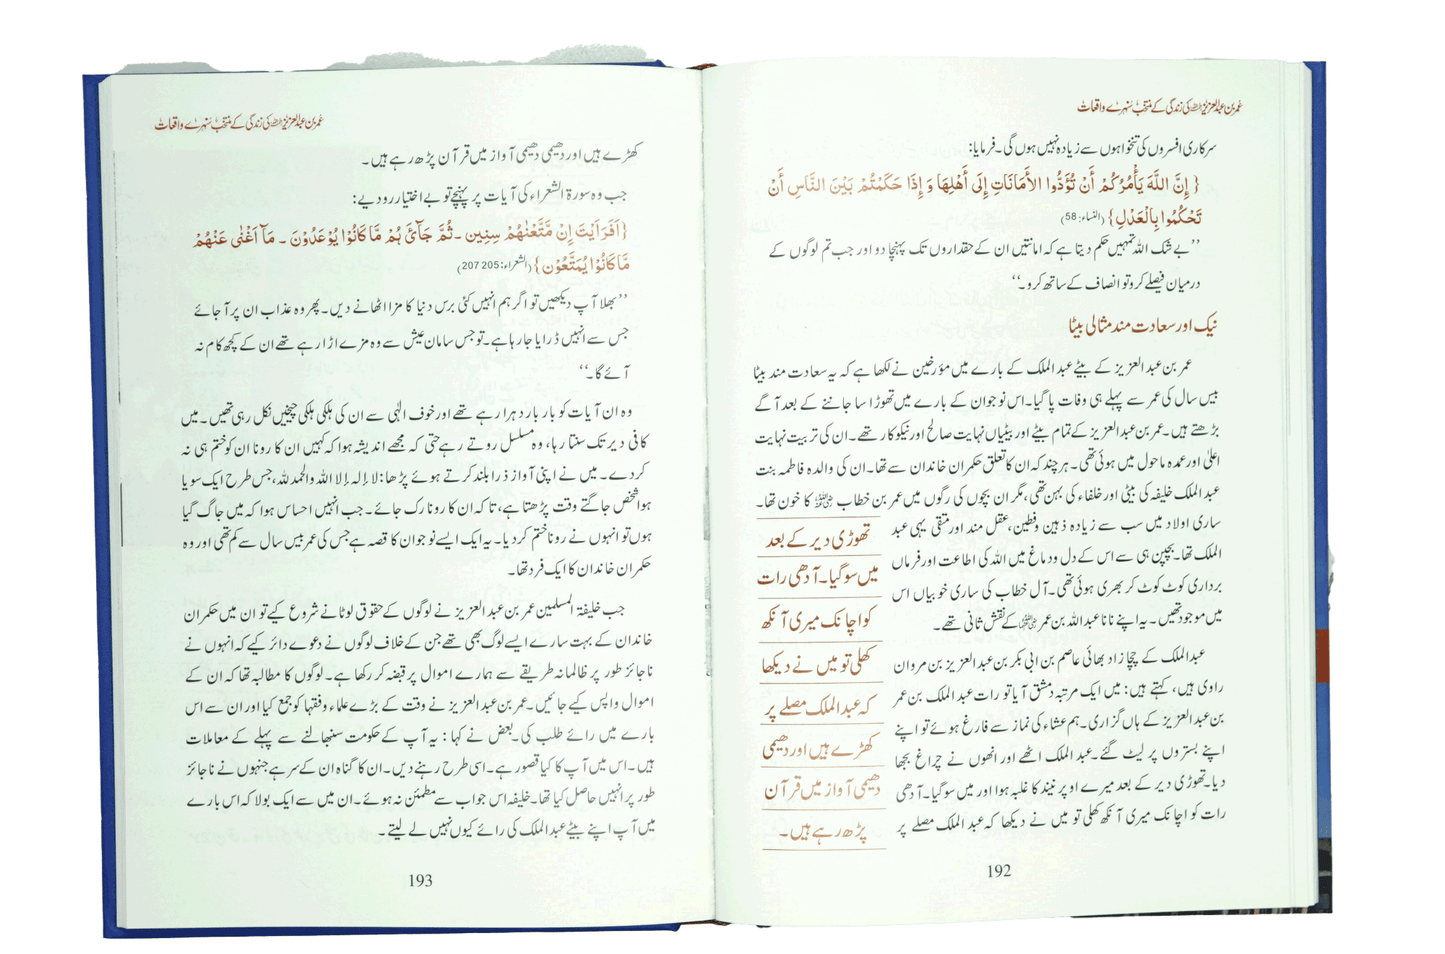 عمر بن عبدالعزیز رحمہ اللہ کی زندگی کے منتخب سنہرے واقعات
سرکاری افسروں کی تنخواہوں سے زیادہ نہیں ہوں گی۔ فرمایا:
{ إِنَّ اللَّهَ يَأْمُرُكُمْ أَنْ تُؤَدُّوا الأَمَانَاتِ إِلَى أَهْلِهَا وَإِذَا حَكَمْتُمْ بَيْنَ النَّاسِ أَنْ
تَحْكُمُوا بِالْعَدْلِ} (النساء: 58)
’’بے شک اللہ تمہیں حکم دیتا ہے کہ امانتیں ان کے حقداروں تک پہنچا دو اور جب تم لوگوں کے
درمیان فیصلے کرو تو انصاف کے ساتھ کرو۔‘‘
نیک اور سعادت مند مثالی بیٹا
عمر بن عبدالعزیز کے بیٹے عبدالملک کے بارے میں مؤرخین نے لکھا ہے کہ یہ سعادت مند بیٹا
بیس سال کی عمر سے پہلے ہی وفات پا گیا۔ اس نوجوان کے بارے میں تھوڑا سا جاننے کے بعد آگے
بڑھتے ہیں۔ عمر بن عبدالعزیز کے تمام بیٹے اور بیٹیاں نہایت صالح اور نیکوکار تھے۔ ان کی تربیت نہایت
اعلیٰ اور عمدہ ماحول میں ہوئی تھی۔ ہر چند کہ ان کا تعلق حکمران خاندان سے تھا۔ ان کی والدہ فاطمہ بنت
عبدالملک خلیفہ کی بیٹی اور خلفاء کی بہن تھی، مگر ان بچوں کی رگوں میں عمر بن خطاب رضی اللہ عنہ کا خون تھا۔
ساری اولاد میں سب سے زیادہ ذہین و فطین، عقل مند اور متقی یہی عبد
الملک تھا۔ بچپن ہی سے اس کے دل و دماغ میں اللہ کی اطاعت اور فرماں
برداری کوٹ کوٹ کر بھری ہوئی تھی۔ آل خطاب کی ساری خوبیاں اس
میں موجود تھیں۔ یہ اپنے نانا عبداللہ بن عمر رضی اللہ عنہما کے نقش ثانی تھے۔
عبدالملک کے چچا زاد بھائی عاصم بن ابی بکر بن عبدالعزیز بن مروان
راوی ہیں، کہتے ہیں: میں ایک مرتبہ دمشق آیا تو رات عبدالملک بن عمر
بن عبدالعزیز کے ہاں گزاری۔ ہم عشاء کی نماز سے فارغ ہوئے تو اپنے
اپنے بستروں پر لیٹ گئے۔ عبدالملک اٹھے اور انھوں نے چراغ بجھا
دیا۔ تھوڑی دیر کے بعد میرے اوپر نیند کا غلبہ ہوا اور میں سو گیا۔ آدھی
رات کو اچانک میری آنکھ کھلی تو میں نے دیکھا کہ عبدالملک مصلے پر
تھوڑی دیر کے بعد
میں سو گیا۔ آدھی رات
کو اچانک میری آنکھ
کھلی تو میں نے دیکھا
کہ عبدالملک مصلے پر
کھڑے ہیں اور دھیمی
دھیمی آواز میں قرآن
پڑھ رہے ہیں۔
192
عمر بن عبدالعزیز رحمہ اللہ کی زندگی کے منتخب سنہرے واقعات
کھڑے ہیں اور دھیمی دھیمی آواز میں قرآن پڑھ رہے ہیں۔
جب وہ سورۃ الشعراء کی آیات پر پہنچے تو بے اختیار رو دیے:
{اَفَرَاَيْتَ اِنْ مَّتَّعْنٰهُمْ سِنِيْن ۔ ثُمَّ جَآئَ هُمْ مَّا كَانُوْا يُوْعَدُوْنَ ۔ مَآ اَغْنٰى عَنْهُمْ
مَّا كَانُوْا يُمَتَّعُوْن} (الشعراء: 205 207)
’’بھلا آپ دیکھیں تو اگر ہم انہیں کئی برس دنیا کا مزا اٹھانے دیں۔ پھر وہ عذاب ان پر آ جائے
جس سے انہیں ڈرایا جا رہا ہے۔ تو جس سامان عیش سے وہ مزے اڑا رہے تھے ان کے کچھ کام نہ
آئے گا۔‘‘
وہ ان آیات کو بار بار دہرا رہے تھے اور خوف الٰہی سے ان کی ہلکی ہلکی چیخیں نکل رہی تھیں۔ میں
کافی دیر تک سنتا رہا، وہ مسلسل روتے رہے حتی کہ مجھے اندیشہ ہوا کہ کہیں ان کا رونا ان کو ختم ہی نہ
کر دے۔ میں نے اپنی آواز ذرا بلند کرتے ہوئے پڑھا: لا إله إلا اللہ والحمد للہ، جس طرح ایک سویا
ہوا شخص جاگتے وقت پڑھتا ہے، تاکہ ان کا رونا رک جائے۔ جب انہیں احساس ہوا کہ میں جاگ گیا
ہوں تو انہوں نے رونا ختم کر دیا۔ یہ ایک ایسے نوجوان کا قصہ ہے جس کی عمر بیس سال سے کم تھی اور وہ
حکمران خاندان کا ایک فرد تھا۔
جب خلیفۃ المسلمین عمر بن عبدالعزیز نے لوگوں کے حقوق لوٹانے شروع کیے تو ان میں حکمران
خاندان کے بہت سارے ایسے لوگ بھی تھے جن کے خلاف لوگوں نے دعوے دائر کیے کہ انہوں نے
ناجائز طور پر ظالمانہ طریقے سے ہمارے اموال پر قبضہ کر رکھا ہے۔ لوگوں کا مطالبہ تھا کہ ان کے
اموال واپس کیے جائیں۔ عمر بن عبدالعزیز نے وقت کے بڑے علماء و فقہا کو جمع کیا اور ان سے اس
بارے میں رائے طلب کی۔ بعض نے کہا: یہ آپ کے حکومت سنبھالنے سے پہلے کے معاملات
ہیں۔ اس میں آپ کا کیا قصور ہے۔ اسی طرح رہنے دیں۔ ان کا گناہ ان کے سر ہے جنہوں نے ناجائز
طور پر انہیں حاصل کیا تھا۔ خلیفہ اس جواب سے مطمئن نہ ہوئے۔ ان میں سے ایک بولا کہ اس بارے
میں آپ اپنے بیٹے عبدالملک کی رائے کیوں نہیں لے لیتے۔
193